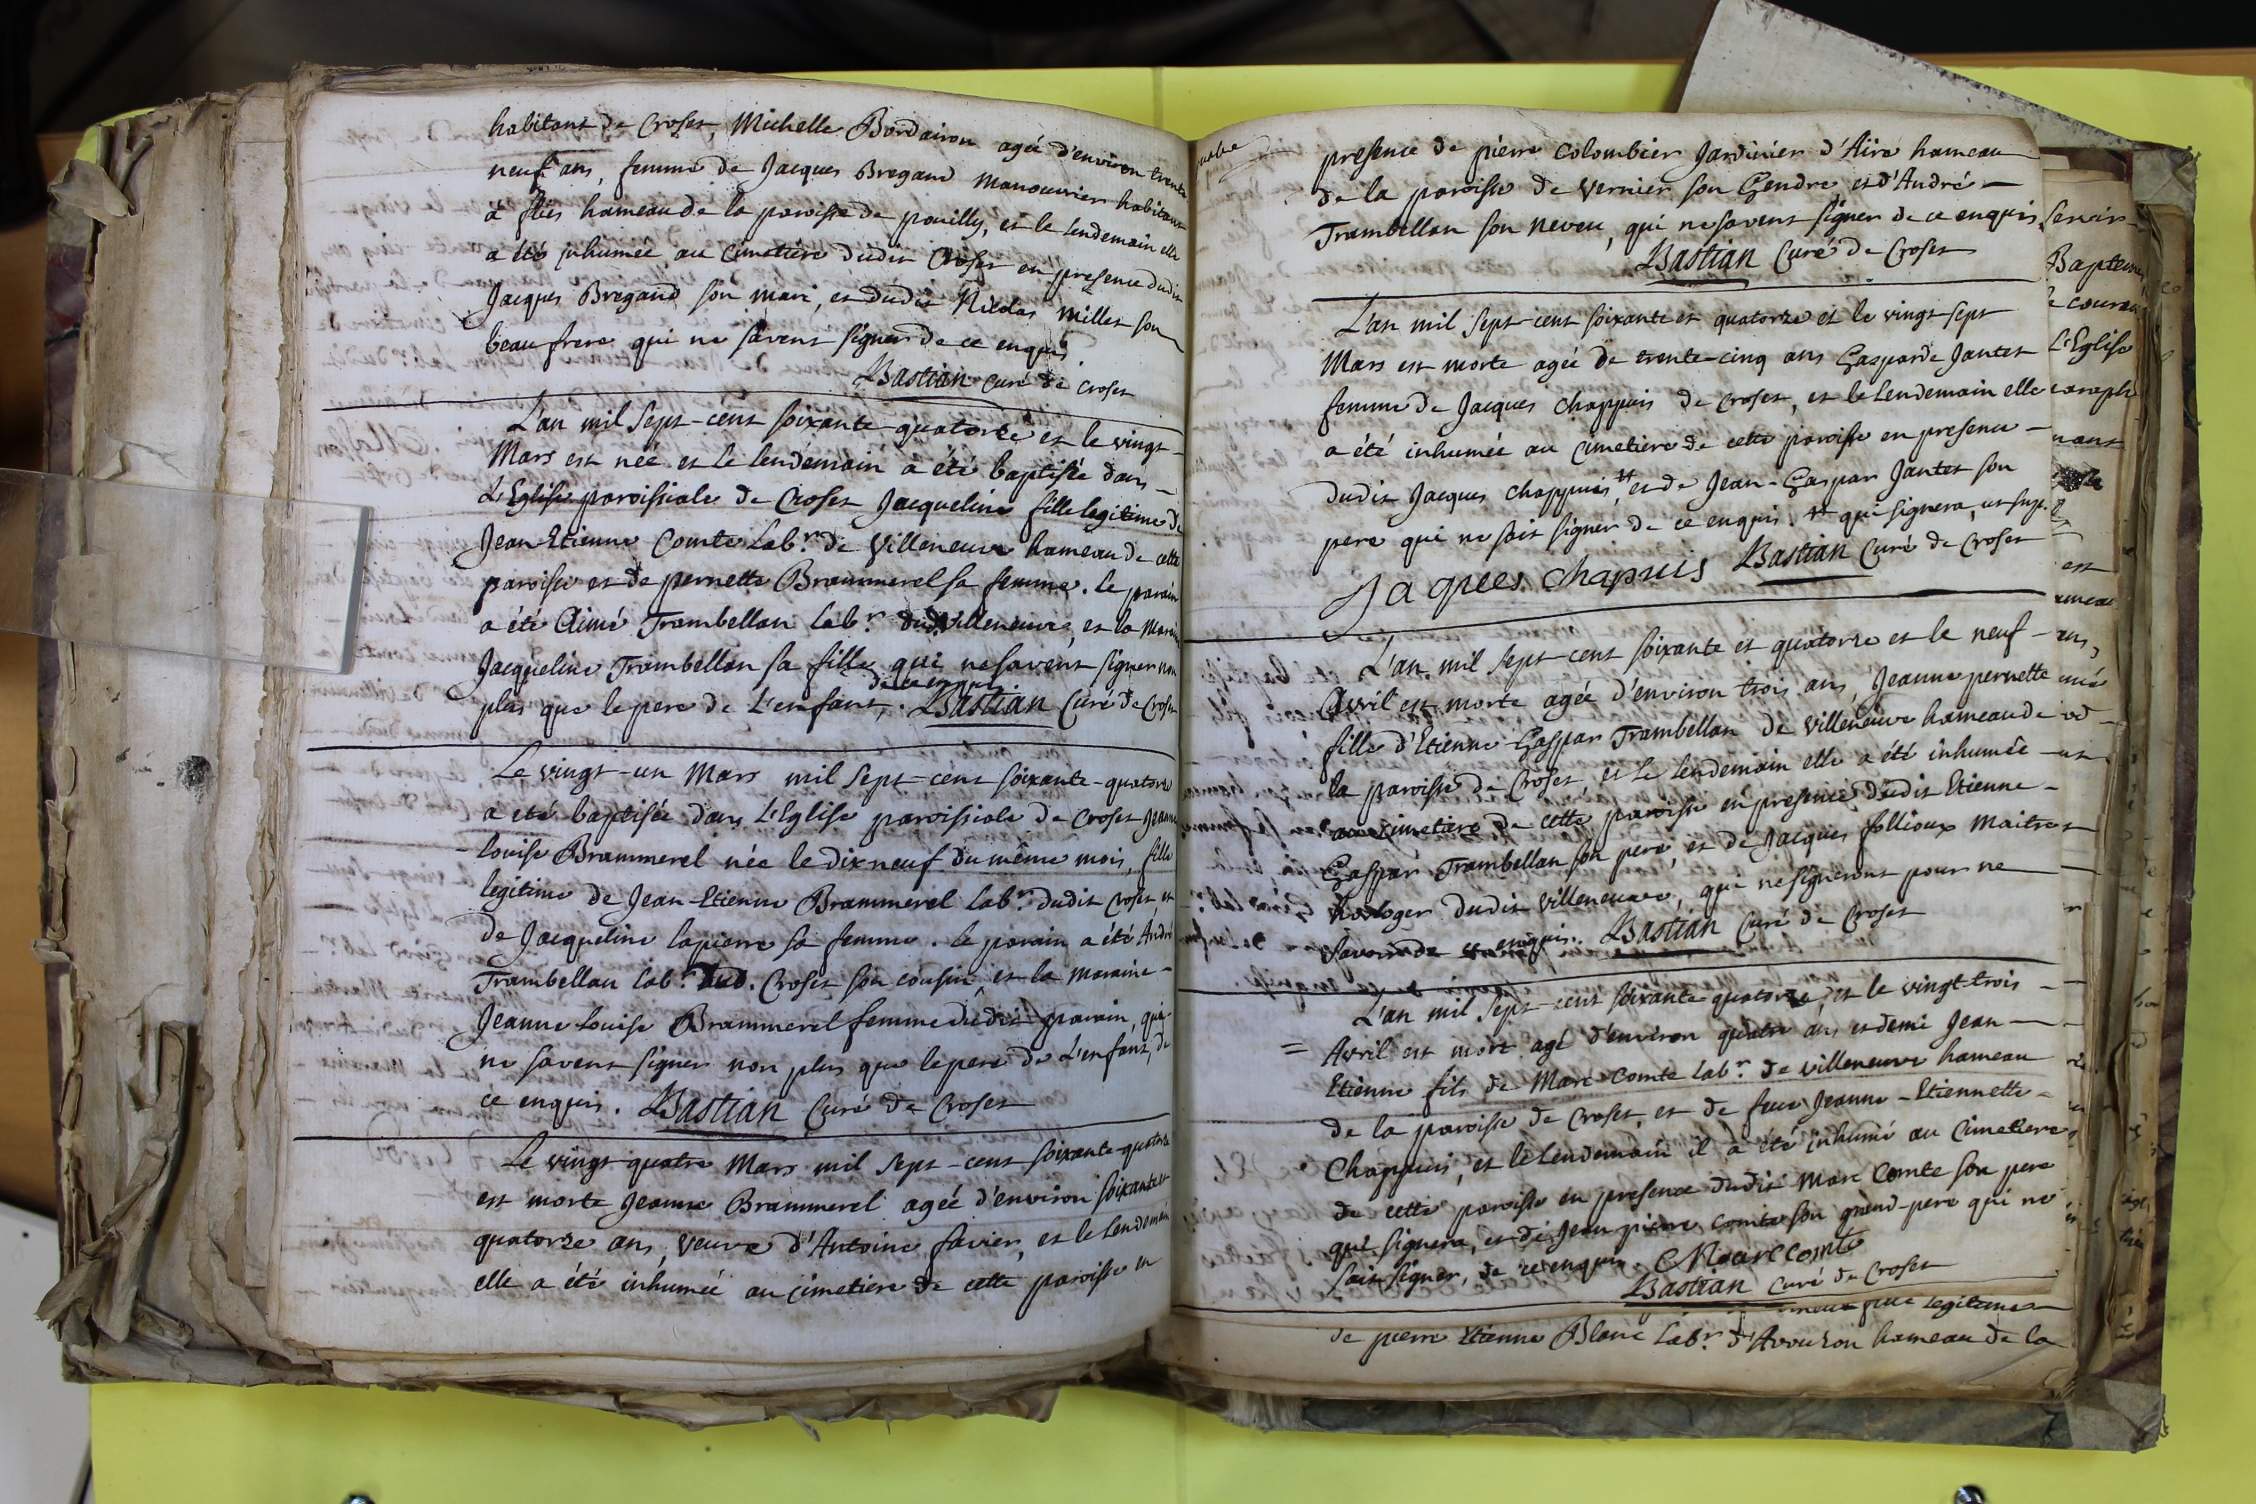 habitant de Croset, Michelle Bordairon agée d'environ trente
neuf ans, femme de Jacques Bregand manouvrier habitant
à flies hameau de la paroisse de pouilly, et le lendemain elle
a été inhumée au cimetiere dudit Croset en presence dudit
Jacques Bregand son mari, et dudit Nicolas Millet son
beau frere qui ne savent signer de ce enquis
Bastian curé de Croset
L'an mil sept-cent soixante quatorze et le vingt
Mars est née et le lendemain a été baptisée dans
L'Eglise paroissiale de Croset Jacqueline fille legitime de
Jean-Etienne Comte lab.r de Villeneuve hameau de cette
paroisse et de pernette Brammerel sa femme. Le parain
a été Aimé Trambellan lab.r dud. Villeneuve, et la Maraine
Jacqueline Trambellan sa fille qui ne savent signer non
de ce enquis
plus que le pere de L'enfant, Bastian Curé de Croset
Le vingt-un Mars mil sept-cent soixante-quatorze
a été baptisée dans L'Eglise paroissiale de Croset Jeanne
louise Brammerel née le dixneuf du même mois, fille
legitime de Jean-Etienne Brammerel lab.r dudit Croset et
de Jacqueline lapierre sa femme. le parain a été André
Trambellan lab.r dud. Croset son cousin, et la maraine
Jeanne louise Brammerel femme dudit parain, qui
ne savent signer non plus que le pere de L'enfant, de
ce enquis. Bastian Curé de Croset
Le vingt-quatre Mars mil sept-cent soixante-quatorze
est morte Jeanne Brammerel agée d'environ soixante et
quatorze ans, veuve d'Antoine favier, et le lendemain
elle a été inhumée au cimetiere de cette paroisse en
presence de pierre Colombier Jardinier d'Aire hameau
de la paroisse de Vernier son Gendre et d'André
Trambellan son neveu, qui ne savent signer de ce enquis
Bastian Curé de Croset
L'an mil sept-cent soixante et quatorze et le vingt-sept
Mars est morte agée de trente-cinq ans Gasparde Jantet
femme de Jacques Chappuis de Croset, et le lendemain elle
a été inhumée au cimetiere de cette paroisse en presence
dudit Jacques Chappuis et de Jean-Gaspar Jantet son
pere qui ne sait signer de ce enquis. qui signera
Jaques Chapuis Bastian Curé de Croset
L'an mil sept-cent soixante et quatorze et le neuf
Avril est morte agée d'environ trois ans, Jeanne pernette
fille d'Etienne Gaspar Trambellan de Villeneuve hameau de
la paroisse de Croset, et le lendemain elle a été inhumée
au cimetiere de cette paroisse en presence dudit Etienne
Gaspar Trambellan son pere, et de Jacques follioux Maitre
horloger dudit Villeneuve, qui ne signeront pour ne
savoir de ce enquis. Bastian Curé de Croset
L'an mil sept-cent soixante quatorze, et le vingt-trois
= Avril est mort agé d'environ quatre ans et demi Jean
Etienne fils de Marc Comte lab.r de Villeneuve hameau
de la paroisse de Croset, et de feue Jeanne-Etiennette
Chappuis, et le lendemain il a été inhumé au Cimetiere
de cette paroisse en presence dudit Marc Comte son pere
qui signera, et de Jean pierre Comte son grand-pere qui ne
sait signer, de ce enquis. Marc Comte
Bastian curé de Croset
legitime
de pierre Etienne Blanc lab.r d'Avouzon hameau de la
servir
Bapteme
le couran
L'Eglise
nant
est
ans,